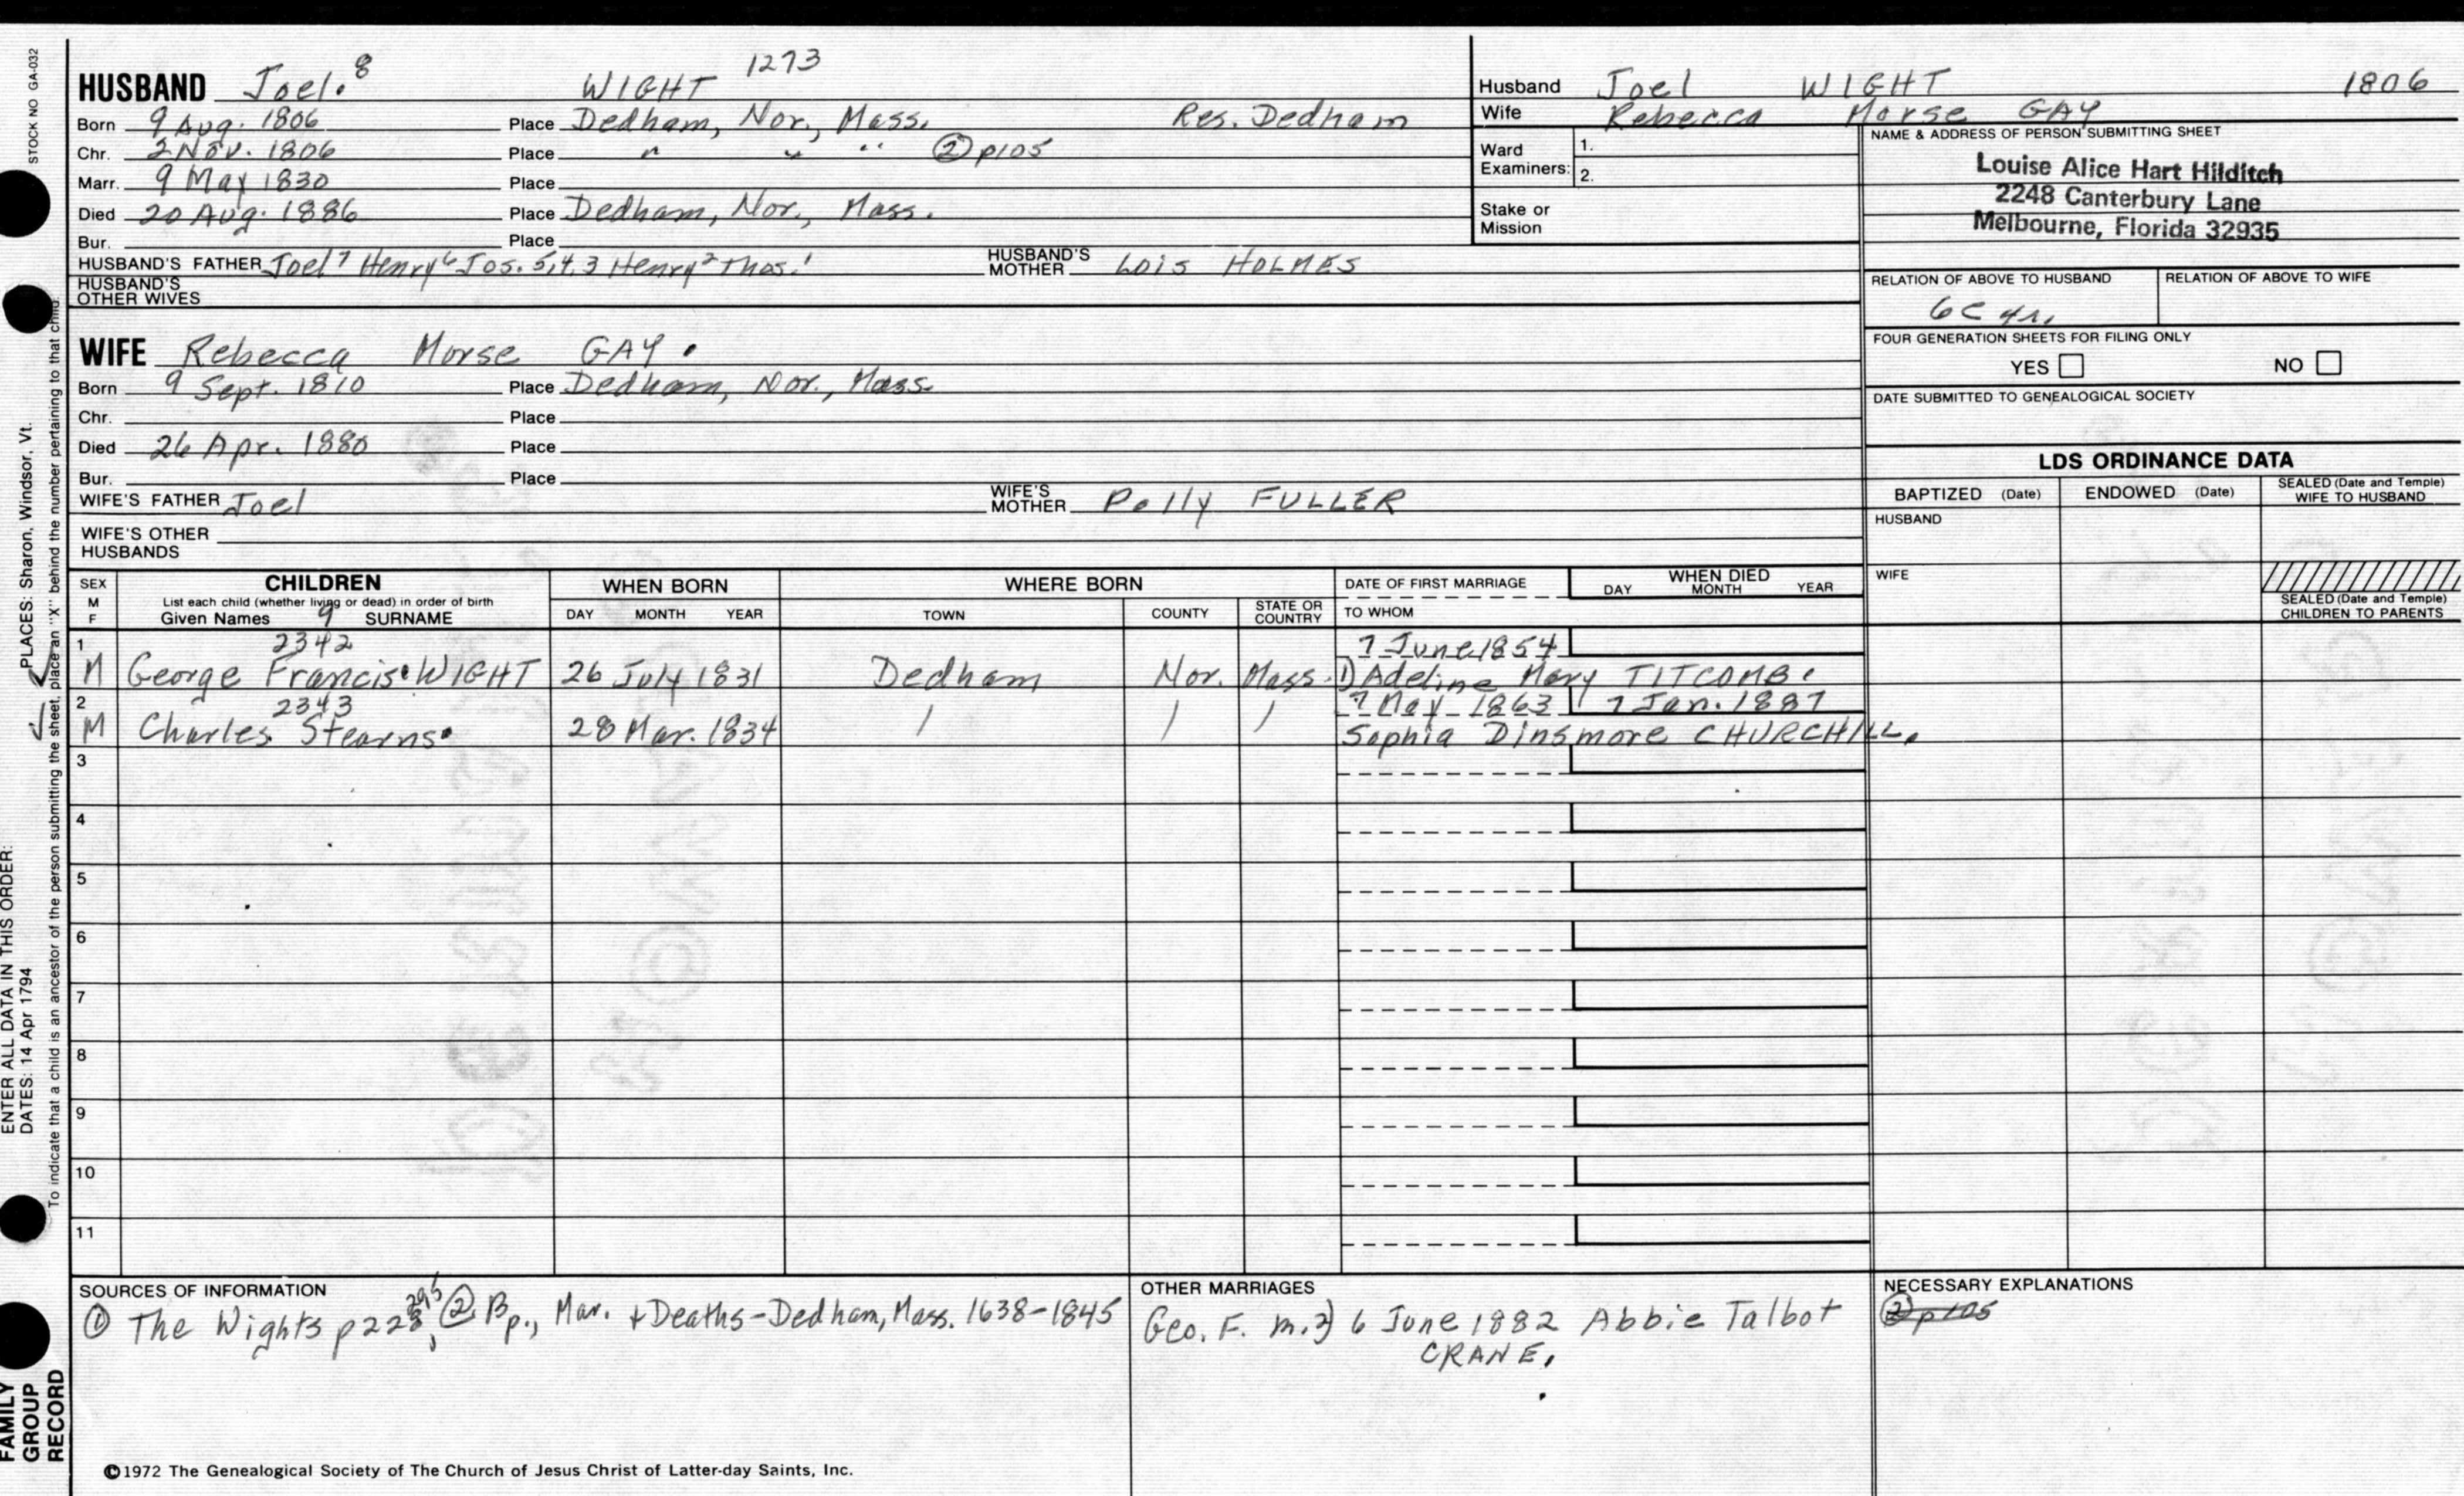 STOCK NO GA-032
HUSBAND Joel. 8 WIGHT 1273
Born 9 Aug. 1806 Place Dedham, Nor., Mass. Res. Dedham
Chr. 2 Nov. 1806 Place " " " ② p105
Marr. 9 May 1830 Place
Died 20 Aug. 1886 Place Dedham, Nor., Mass.
Bur. Place
HUSBAND'S FATHER Joel 7 Henry 6 Jos. 5,4,3 Henry 2 Thos. 1 HUSBAND'S MOTHER Lois HOLMES
HUSBAND'S OTHER WIVES
WIFE Rebecca Morse GAY.
Born 9 Sept. 1810 Place Dedham, Nor., Mass
Chr. Place
Died 26 Apr. 1880 Place
Bur. Place
WIFE'S FATHER Joel WIFE'S MOTHER Polly FULLER
WIFE'S OTHER HUSBANDS
Husband Joel WIGHT 1806
Wife Rebecca Morse GAY
Ward Examiners: 1.
2.
Stake or Mission
NAME & ADDRESS OF PERSON SUBMITTING SHEET
Louise Alice Hart Hilditch
2248 Canterbury Lane
Melbourne, Florida 32935
RELATION OF ABOVE TO HUSBAND RELATION OF ABOVE TO WIFE
6C 4r.
FOUR GENERATION SHEETS FOR FILING ONLY
YES NO
DATE SUBMITTED TO GENEALOGICAL SOCIETY
LDS ORDINANCE DATA
BAPTIZED (Date) ENDOWED (Date) SEALED (Date and Temple) WIFE TO HUSBAND
HUSBAND
WIFE
SEALED (Date and Temple) CHILDREN TO PARENTS
SEX M F
CHILDREN
List each child (whether living or dead) in order of birth
Given Names 9 SURNAME
WHEN BORN
DAY MONTH YEAR
WHERE BORN
TOWN COUNTY STATE OR COUNTRY
DATE OF FIRST MARRIAGE
TO WHOM
WHEN DIED
DAY MONTH YEAR
1 2342 7 June 1854
M George Francis. WIGHT 26 July 1831 Dedham Nor. Mass. 1) Adeline Mary TITCOMB.
2 2343 7 May 1863 7 Jan. 1887
M Charles Stearns. 28 Mar. 1834 / / / Sophia Dinsmore CHURCHILL.
3
4
5
6
7
8
9
10
11
SOURCES OF INFORMATION
① The Wights p228, 295 ② Bp., Mar. + Deaths-Dedham, Mass. 1638-1845
OTHER MARRIAGES
Geo. F. m. 2) 6 June 1882 Abbie Talbot
CRANE.
NECESSARY EXPLANATIONS
② p105
©1972 The Genealogical Society of The Church of Jesus Christ of Latter-day Saints, Inc.
ENTER ALL DATA IN THIS ORDER:
DATES: 14 Apr 1794 PLACES: Sharon, Windsor, Vt.
To indicate that a child is an ancestor of the person submitting the sheet, place an "X" behind the number pertaining to that child.
FAMILY
GROUP
RECORD